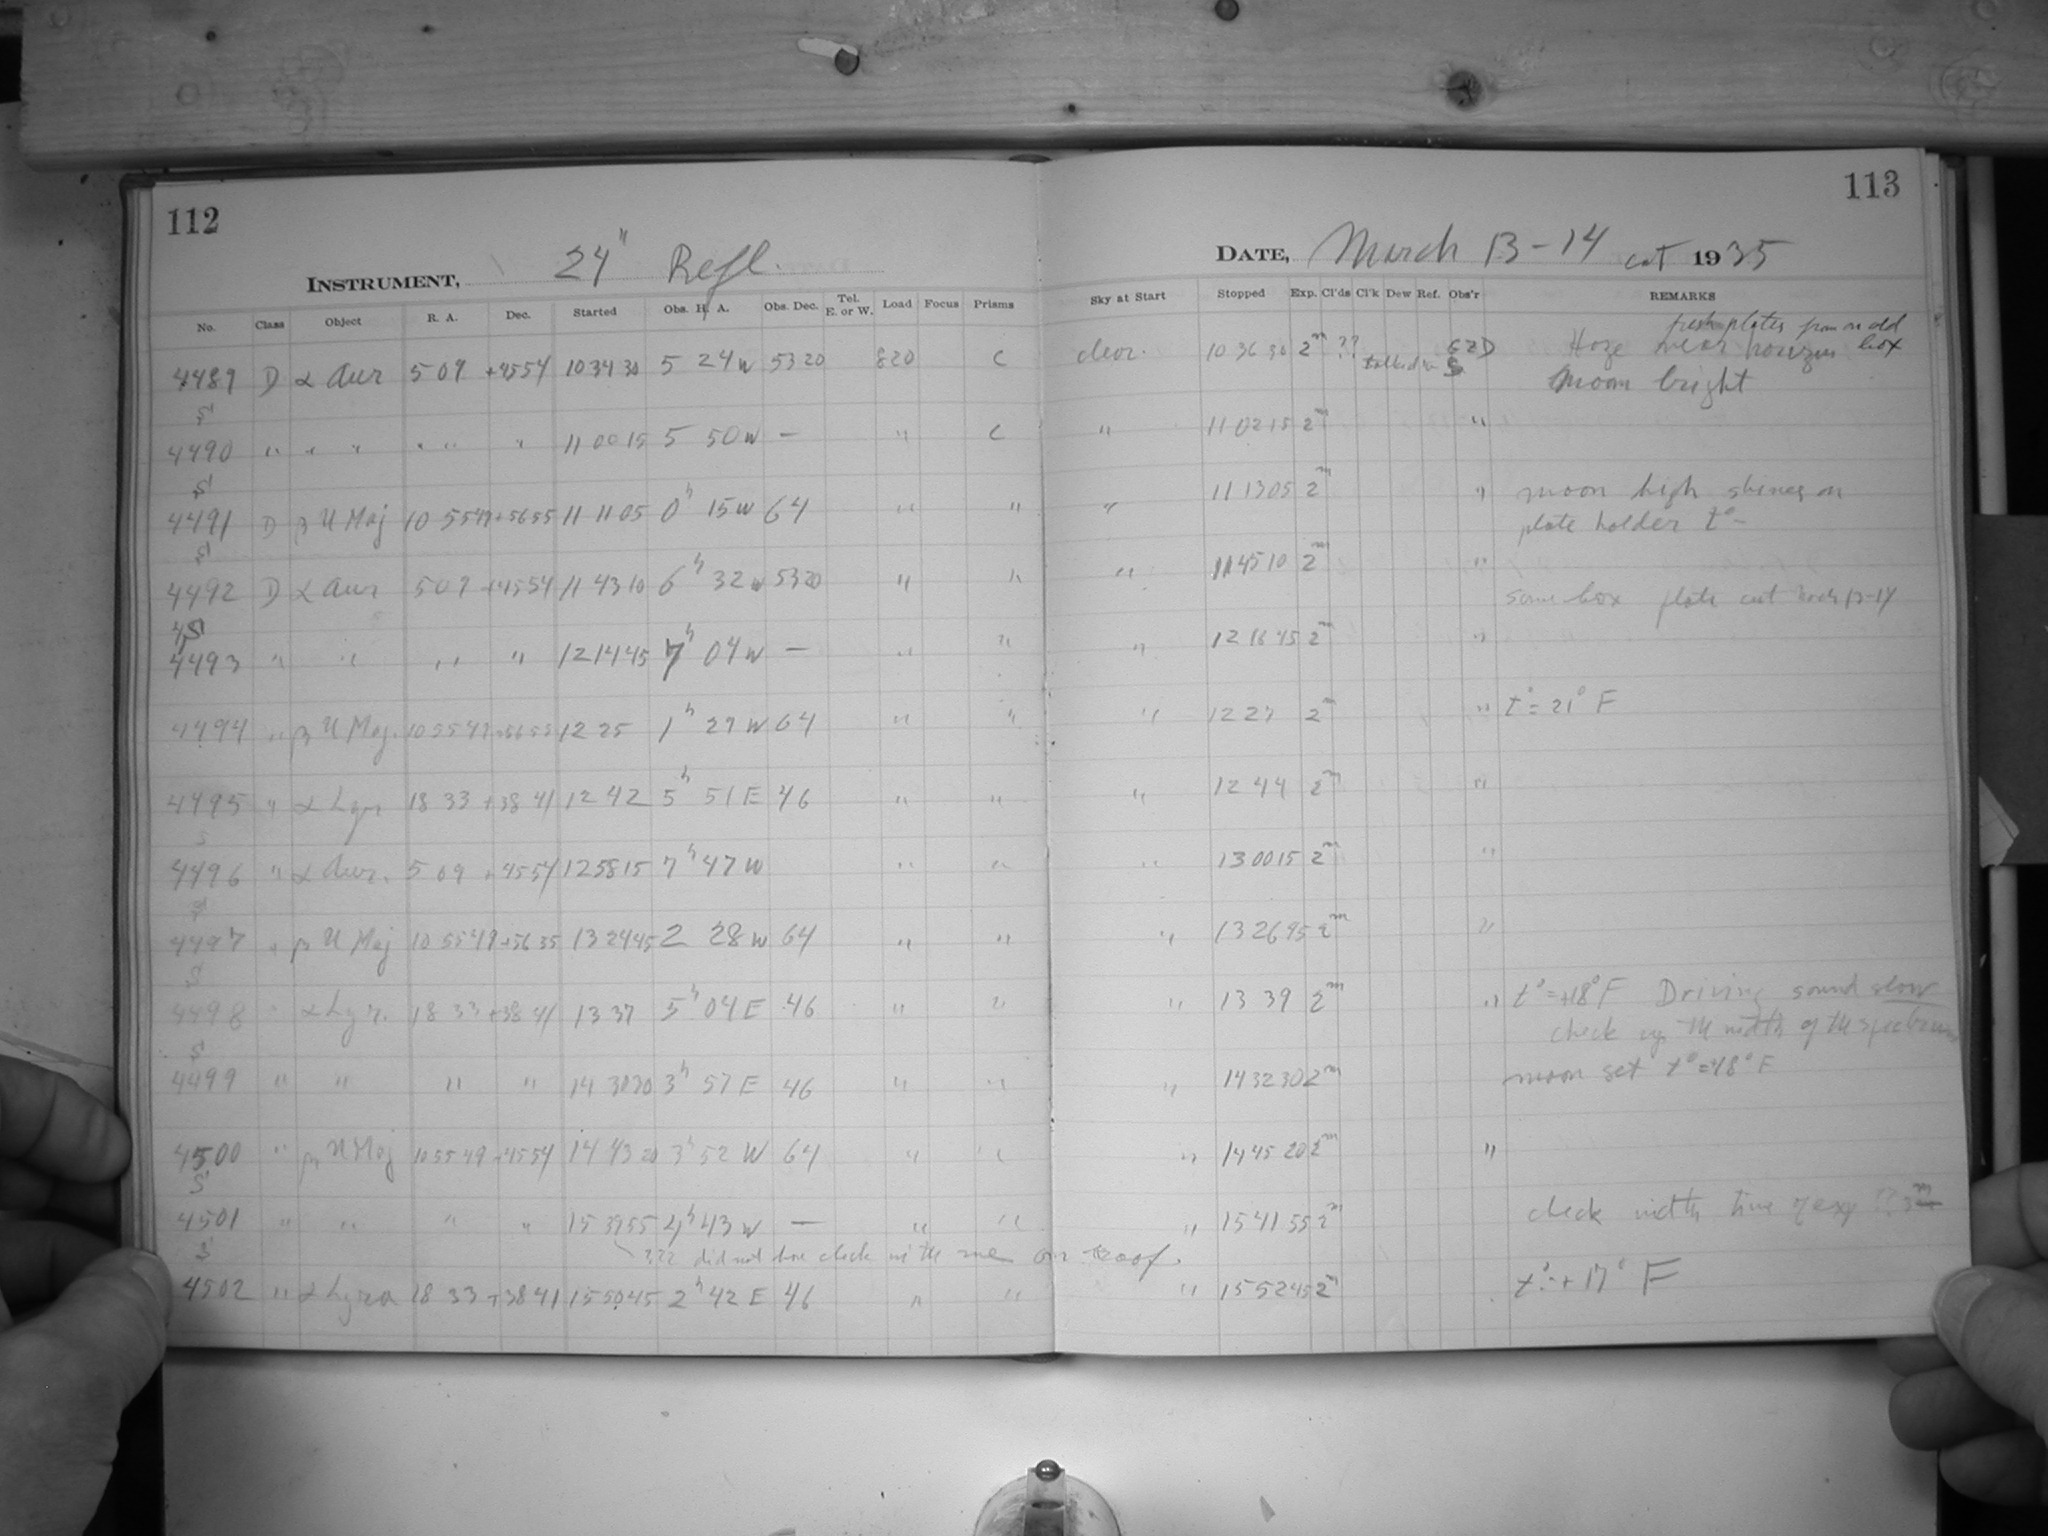 112
113
INSTRUMENT, 24" Refl.
DATE, March 13-14 1935
No. Class Object R. A. Dec. Started Obs. H. A. Obs. Dec. Tel. E. or W. Load Focus Prisms
Sky at Start Stopped Exp. Cl'ds Cl'k Dew Ref. Obs'r REMARKS
fresh plates from an old
4489 D α Aur 5 09 +4554 10 34 30 5 24 W 5320 820 C clear. 10 36 30 2m ?? SZD Haze near horizon box
Moon bright
S
4490 " " " " " " 11 00 15 5 50 W — " C " 11 02 15 2m "
S
4491 D β U Maj 10 5549 +5655 11 11 05 0h 15 W 64 " " " 11 13 05 2m " moon high shines on
plate holder t° —
S
4492 D α Aur 5 09 +4554 11 43 10 6h 32 W 5320 " " " 11 45 10 2m "
same box plate cut March 13-14
S
4493 " " " " 12 14 45 7h 04 W — " " " 12 16 45 2m "
4494 " β U Maj. 10 5549 +5655 12 25 1h 27 W 64 " " " 12 27 2m " t° = 21° F
4495 " α Lyr 18 33 +38 41 12 42 5h 51 E 46 " " " 12 44 2m "
S
4496 " α Aur. 5 09 +4554 12 58 15 7h 47 W " " " 13 00 15 2m "
S
4497 " β U Maj 10 5549 +5655 13 24 45 2 28 W 64 " " " 13 26 45 2m "
S
4498 " α Lyr. 18 33 +38 41 13 37 5h 04 E 46 " " " 13 39 2m " t° = +18° F Driving sound slow
check up the width of the spectrum
S
4499 " " " " 14 30 30 3h 57 E 46 " " " 14 32 30 2m moon set t° = 18° F
4500 " β U Maj 10 5549 +4554 14 43 20 3h 52 W 64 " " " 14 45 20 2m "
S
4501 " " " " 15 39 55 4h 43 W — " " " 15 41 55 2m check width time of exp ?? 3m
??? did not have check with the one on roof.
S
4502 " α Lyra 18 33 +38 41 15 50 45 2h 42 E 46 " " " 15 52 45 2m t° = +17° F